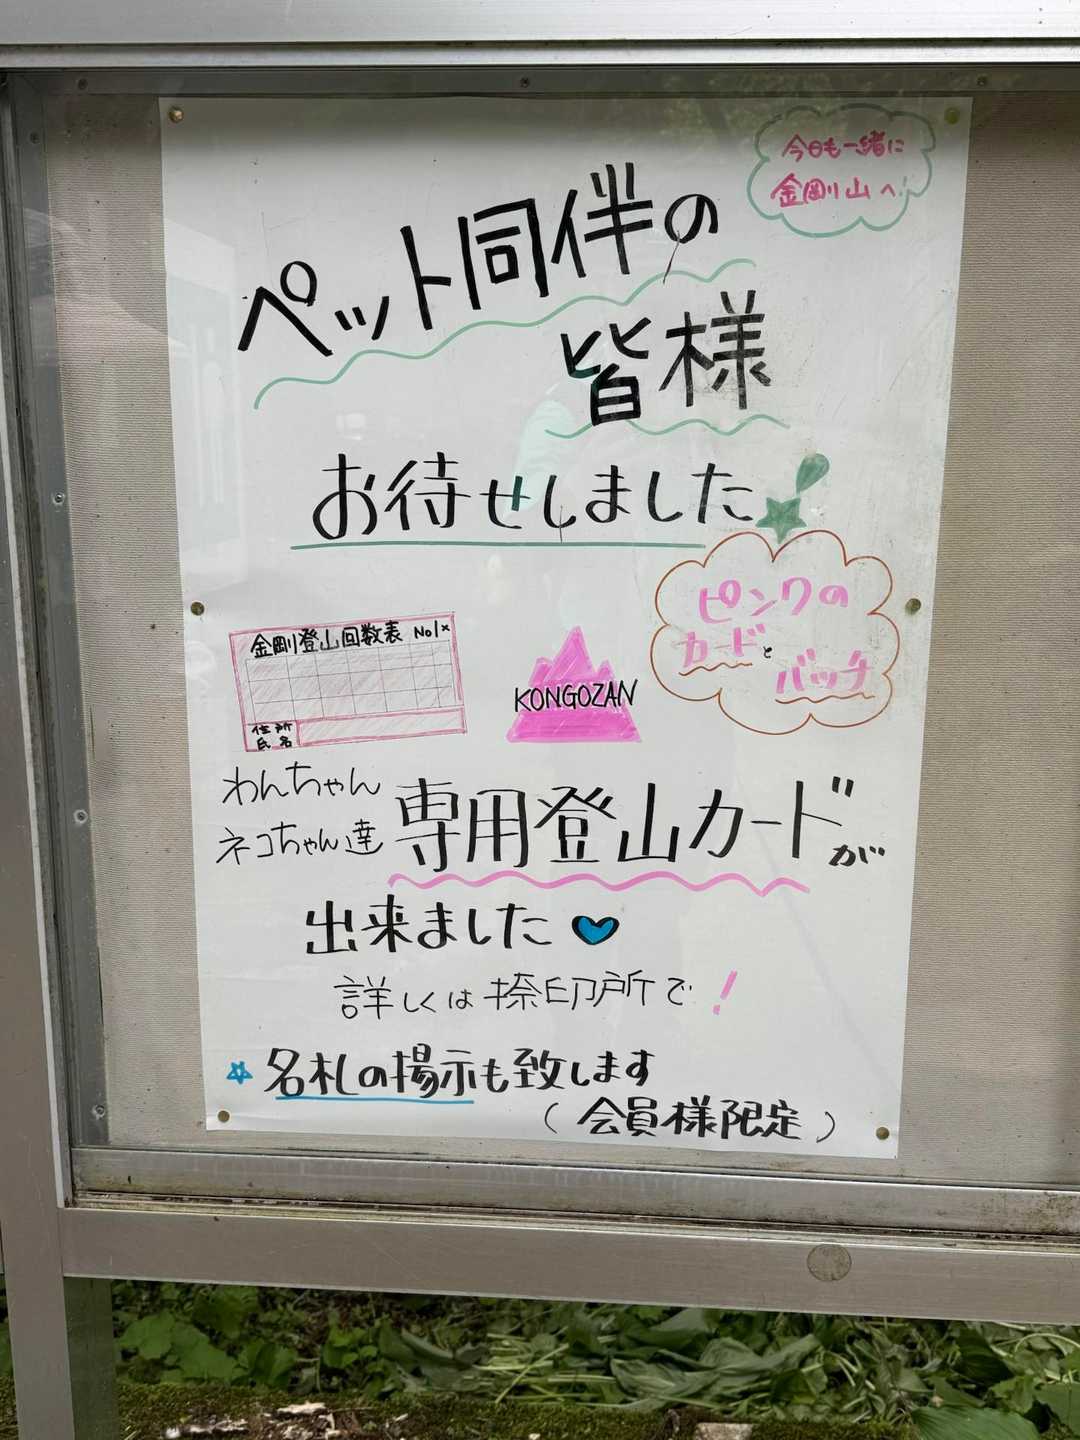 今日も一緒に
金剛山へ!
ペット同伴の
皆様
お待せしました!
ピンクの
カードと
バッチ
金剛登山回数表 No1
住所
氏名
KONGOZAN
わんちゃん
ネコちゃん達
専用登山カードが
出来ました
詳しくは捺印所で!
名札の掲示も致します
(会員様限定)